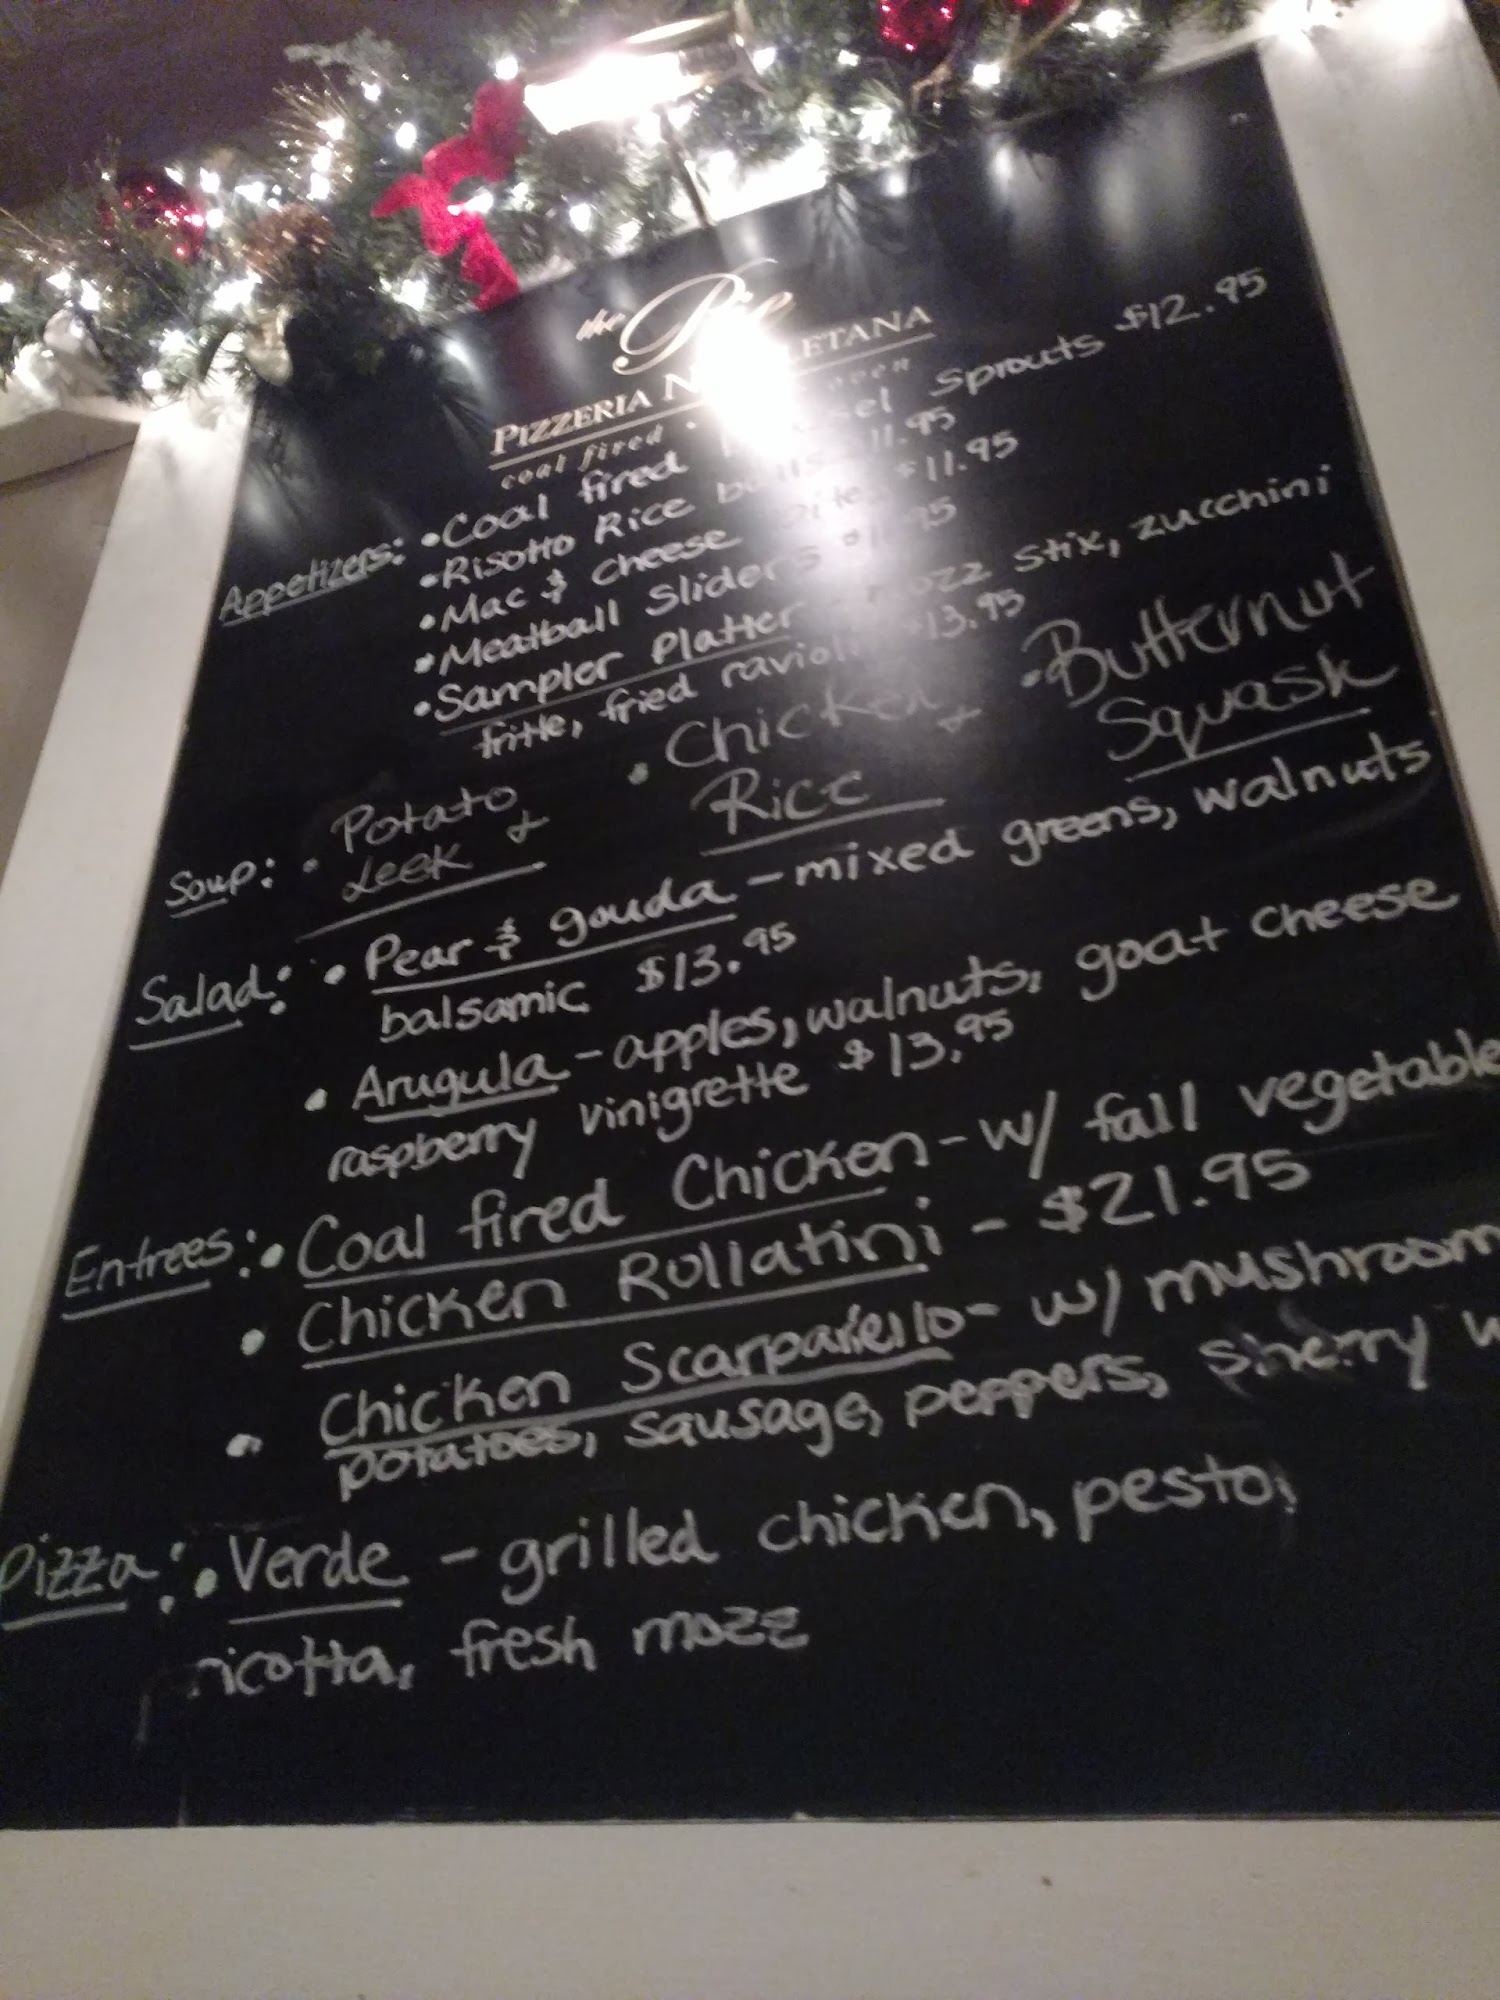 the Pie
PIZZERIA
coal fired oven"
Appetizers: • Coal fired Sprouts $12.95
• Risotto Rice balls 11.95
• Mac & cheese bites $11.95
• Meatball Sliders
• Sampler Platter - mozz stix, zucchini
fritte, fried ravioli 13.95
Soup: • Potato & Leek • Chicken & Rice • Butternut Squash
Salad: • Pear & gouda - mixed greens, walnuts
balsamic $13.95
• Arugula - apples, walnuts, goat cheese
raspberry vinigrette $13.95
Entrees: • Coal fired Chicken - w/ fall vegetable
• Chicken Rollatini - $21.95
• Chicken Scarpariello - w/ mushroom
potatoes, sausage, peppers, sherry
Pizza: • Verde - grilled chicken, pesto,
ricotta, fresh mozz